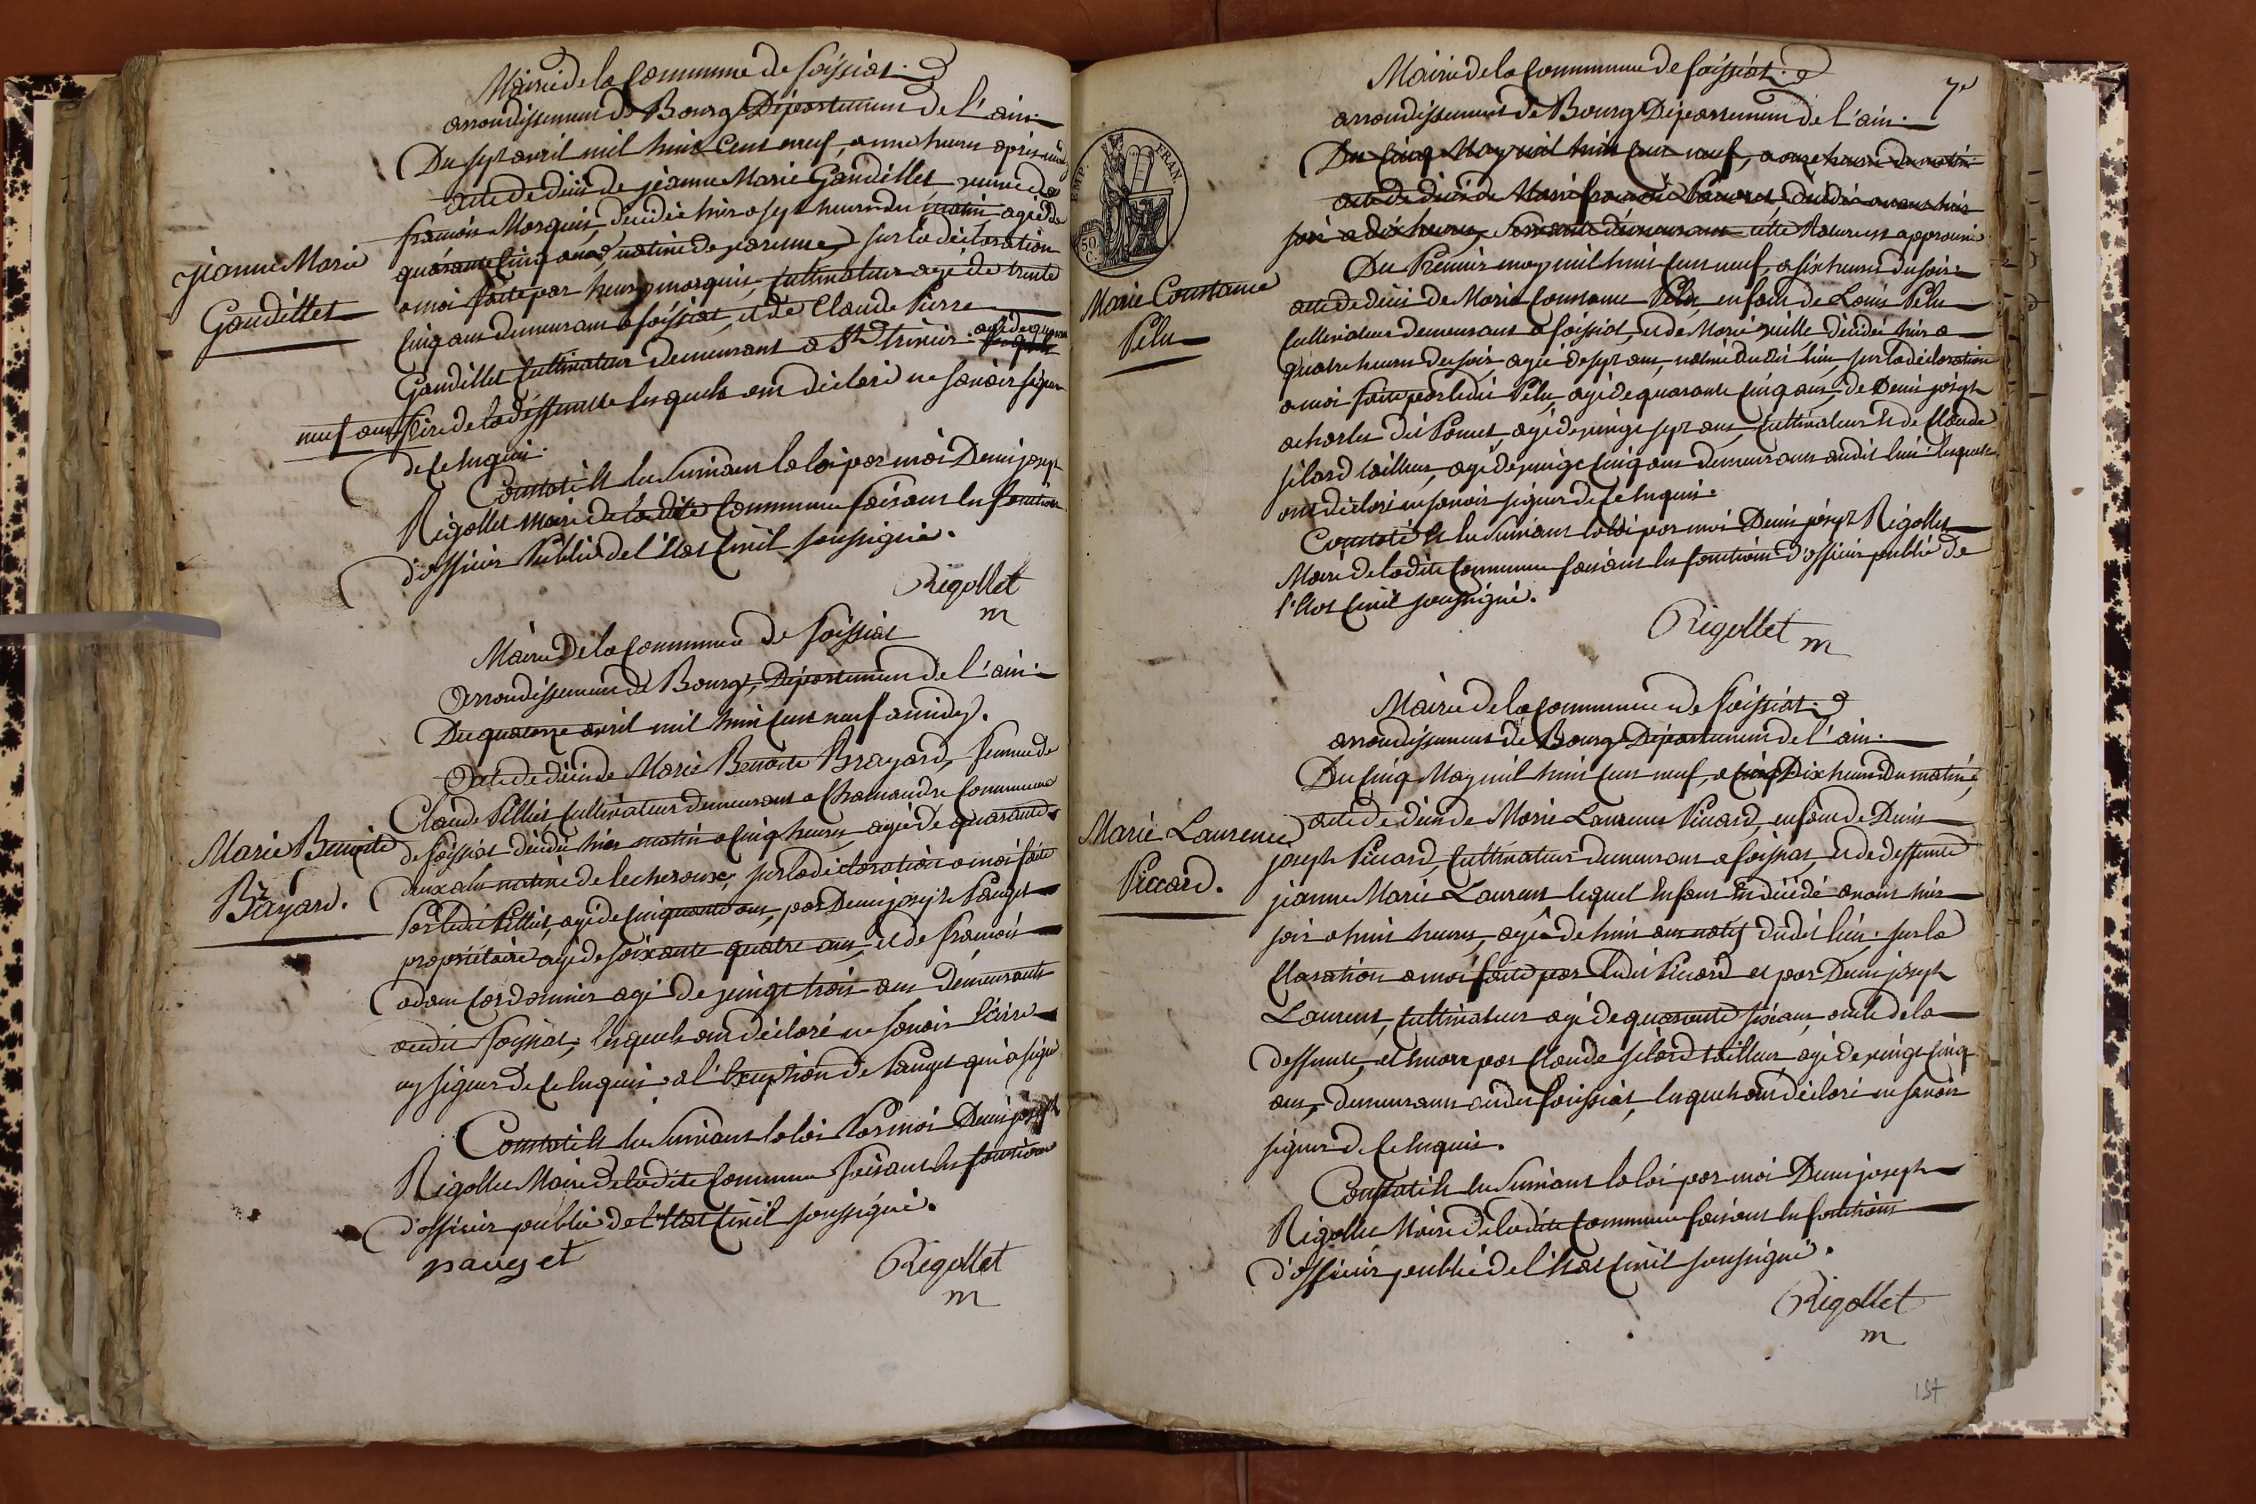 Mairie de la Commune de foissiat
arrondissement de Bourg Département de l'ain
Du sept avril mil huit Cent neuf, a une heure après midy
acte de décès de jeanne Marie Gaudillet veuve de
françois Marquis, décédée hier a sept heures du matin agée de
quarante Cinq ans, native de sur la déclaration
a moi faite par henry marquis, Cultivateur agé de trente
Cinq ans demeurant a foissiat, et de Claude Pierre
Gaudillet Cultivateur demeurant a St trivier agé de quarante
neuf ans frère de la deffunte lesquels ont déclaré ne savoir signer
de ce enquis.
Constaté les suivant la loi par moi Denis joseph
Rigollet maire de la dite Commune faisant les fonctions
d'officier Public de l'état Civil soussigné.
Rigollet
m
jeanne Marie
Gaudillet
Mairie de la Commune de foissiat
arrondissement de Bourg, Département de l'ain
Du quatorze avril mil huit Cent neuf a midy.
acte de décès de Marie Benoite Brayard, femme de
Claude Pillier Cultivateur demeurant a Chamandre Commune
de foissiat décédée hier matin a Cinq heures, agée de quarante
deux ans native de lecheroux, sur la déclaration a moi faite
Par ledit Pillier, agé de Cinquante ans, par Denis joseph Pauget
propriétaire agé de soixante quatre ans, et de françois
adam Cordonnier agé de vingt trois ans demeurants
audit foissiat, lesquels ont déclaré ne savoir Ecrire
ny signer de ce enquis, a l'Exception de Pauget qui a signé
Constaté les suivant la loi Par moi Denis joseph
Rigollet Maire de la dite Commune faisant les fonctions
d'officier public de l'Etat Civil soussigné.
pauget
Rigollet
m
Marie Benoite
Brayard.
Mairie de la Commune de foissiat
7e
arrondissement de Bourg Département de l'ain
Du Cinq May mil huit Cent neuf, a onze heures du matin
acte de décès de Marie décédé avant hier
soir a dix heures, cette Rature est approuvé
Du Premier may mil huit Cent neuf, a six heures du soir
acte de décès de Marie Constance Pelu, enfant de Louis Pelu
Cultivateur demeurant a foissiat, et de Marie décédée hier a
quatre heures du soir, agée de sept ans, native dudit lieu, sur la déclaration
a moi faite par ledit Pelu, agé de quarante Cinq ans, de Denis joseph
acharles dit Pomet, agé de vingt sept ans, Cultivateur et de Claude
jelard tailleur, agé de vingt Cinq ans demeurants audit lieu lesquels
ont déclaré ne savoir signer de ce enquis.
Constaté les suivant la loi par moi Denis joseph Rigollet
Maire de la dite Commune faisant les fonctions d'officier public de
l'Etat Civil soussigné.
Rigollet
m
EMP. FRAN.
50
C.
Marie Constance
Pelu
Mairie de la Commune de foissiat
arrondissement de Bourg Département de l'ain
Du Cinq May mil huit Cent neuf, a Cinq Dix heures du matin,
acte de décès de Marie Laurence Piccard, enfant de Denis
joseph Piccard, Cultivateur demeurant a foissiat, et de deffunte
jeanne Marie Laurent lequel Enfant Est décédé avant hier
soir a huit heures, agée de huit ans natif dudit lieu, sur la
Claration a moi faite par ledit Piccard et par Denis joseph
Laurent, Cultivateur agé de quarante six ans, oncle de la
deffunte, et encore par Claude jelard tailleur, agé de vingt Cinq
ans, demeurants audit foissiat, lesquels ont déclaré ne savoir
signer de ce enquis.
Constaté les suivant la loi par moi Denis joseph
Rigollet Maire de la dite Commune faisant les fonctions
d'officier public de l'Etat Civil soussigné.
Rigollet
m
Marie Laurence
Piccard.
157